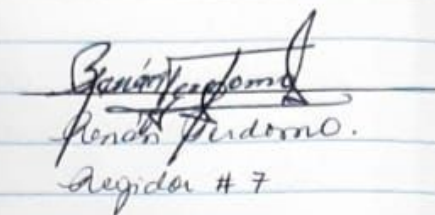 Renán Perdomo
Renán Perdomo.
Regidor # 7